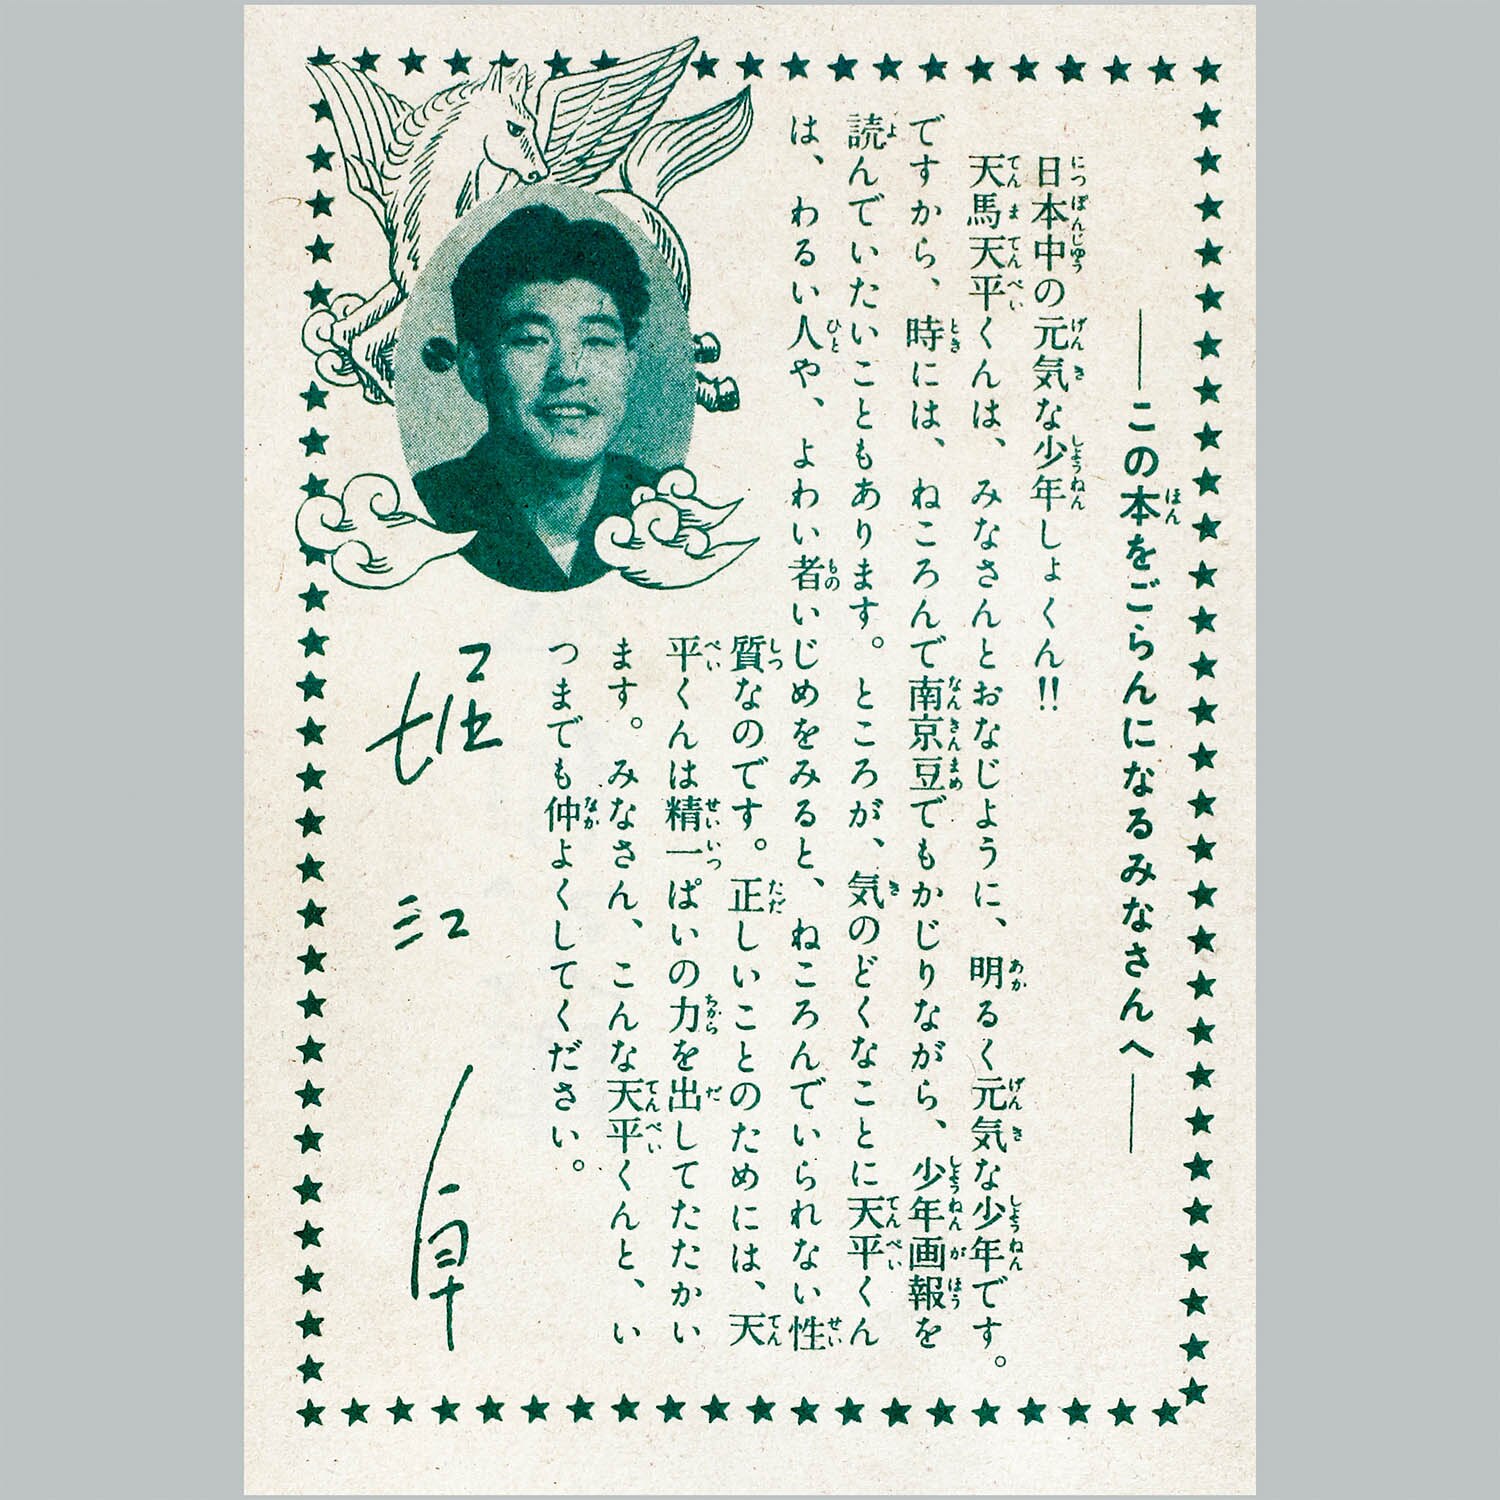 ――この本をごらんになるみなさんへ――
日本中の元気な少年しょくん!!
天馬天平くんは、みなさんとおなじように、明るく元気な少年です。
ですから、時には、ねころんで南京豆でもかじりながら、少年画報を
読んでいたいこともあります。ところが、気のどくなことに天平くん
は、わるい人や、よわい者いじめをみると、ねころんでいられない性
質なのです。正しいことのためには、天
平くんは精一ぱいの力を出してたたかい
ます。みなさん、こんな天平くんと、い
つまでも仲よくしてください。
堀江卓